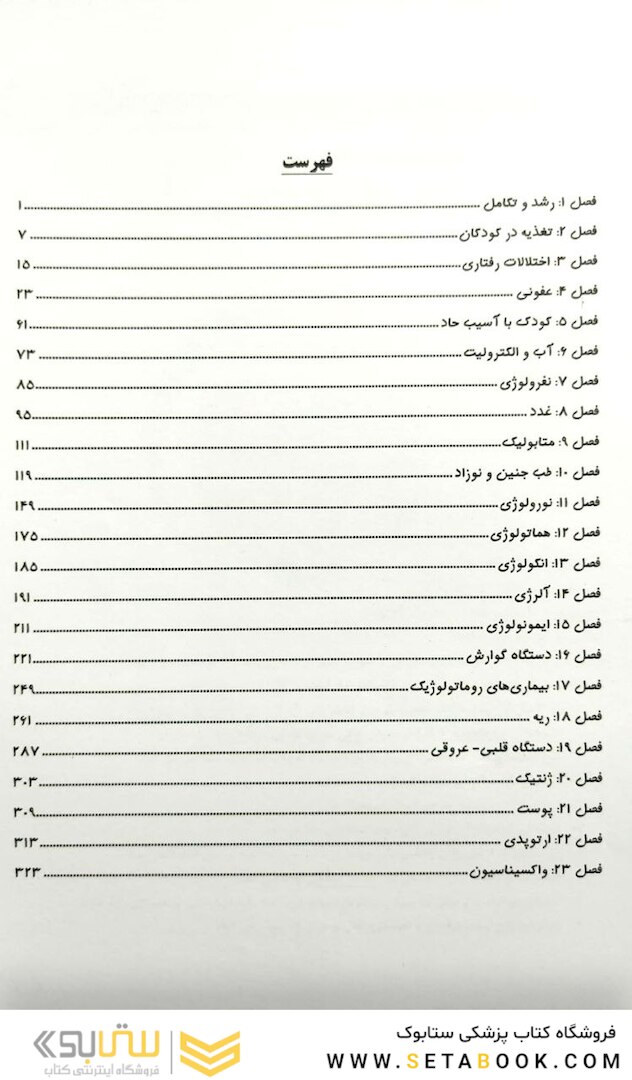 فهرست
فصل ۱: رشد و تکامل ........ ۱
فصل ۲: تغذیه در کودکان ........ ۷
فصل ۳: اختلالات رفتاری ........ ۱۵
فصل ۴: عفونی ........ ۲۳
فصل ۵: کودک با آسیب حاد ........ ۶۱
فصل ۶: آب و الکترولیت ........ ۷۳
فصل ۷: نفرولوژی ........ ۸۵
فصل ۸: غدد ........ ۹۵
فصل ۹: متابولیک ........ ۱۱۱
فصل ۱۰: طب جنین و نوزاد ........ ۱۱۹
فصل ۱۱: نورولوژی ........ ۱۴۹
فصل ۱۲: هماتولوژی ........ ۱۷۵
فصل ۱۳: انکولوژی ........ ۱۸۵
فصل ۱۴: آلرژی ........ ۱۹۱
فصل ۱۵: ایمونولوژی ........ ۲۱۱
فصل ۱۶: دستگاه گوارش ........ ۲۲۱
فصل ۱۷: بیماری‌های روماتولوژیک ........ ۲۴۹
فصل ۱۸: ریه ........ ۲۶۱
فصل ۱۹: دستگاه قلبی- عروقی ........ ۲۸۷
فصل ۲۰: ژنتیک ........ ۳۰۳
فصل ۲۱: پوست ........ ۳۰۹
فصل ۲۲: ارتوپدی ........ ۳۱۳
فصل ۲۳: واکسیناسیون ........ ۳۲۳
فروشگاه کتاب پزشکی ستابوک
WWW.SETABOOK.COM
ستابوک
فروشگاه اینترنتی کتاب